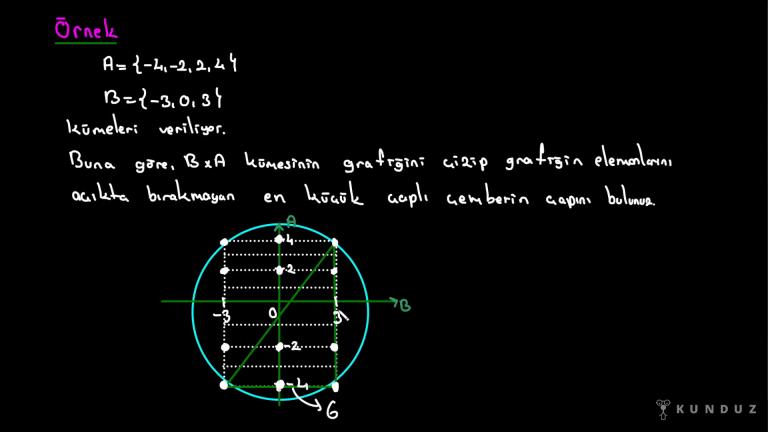 Örnek
A={-4,-2,2,4}
B={-3,0,3}
kümeleri veriliyor.
Buna göre, BxA kümesinin grafiğini çizip grafiğin elemanlarını
açıkta bırakmayan en küçük çaplı çemberin çapını bulunuz.
A
4
2
-3 0 3 B
-2
-4
6
KUNDUZ